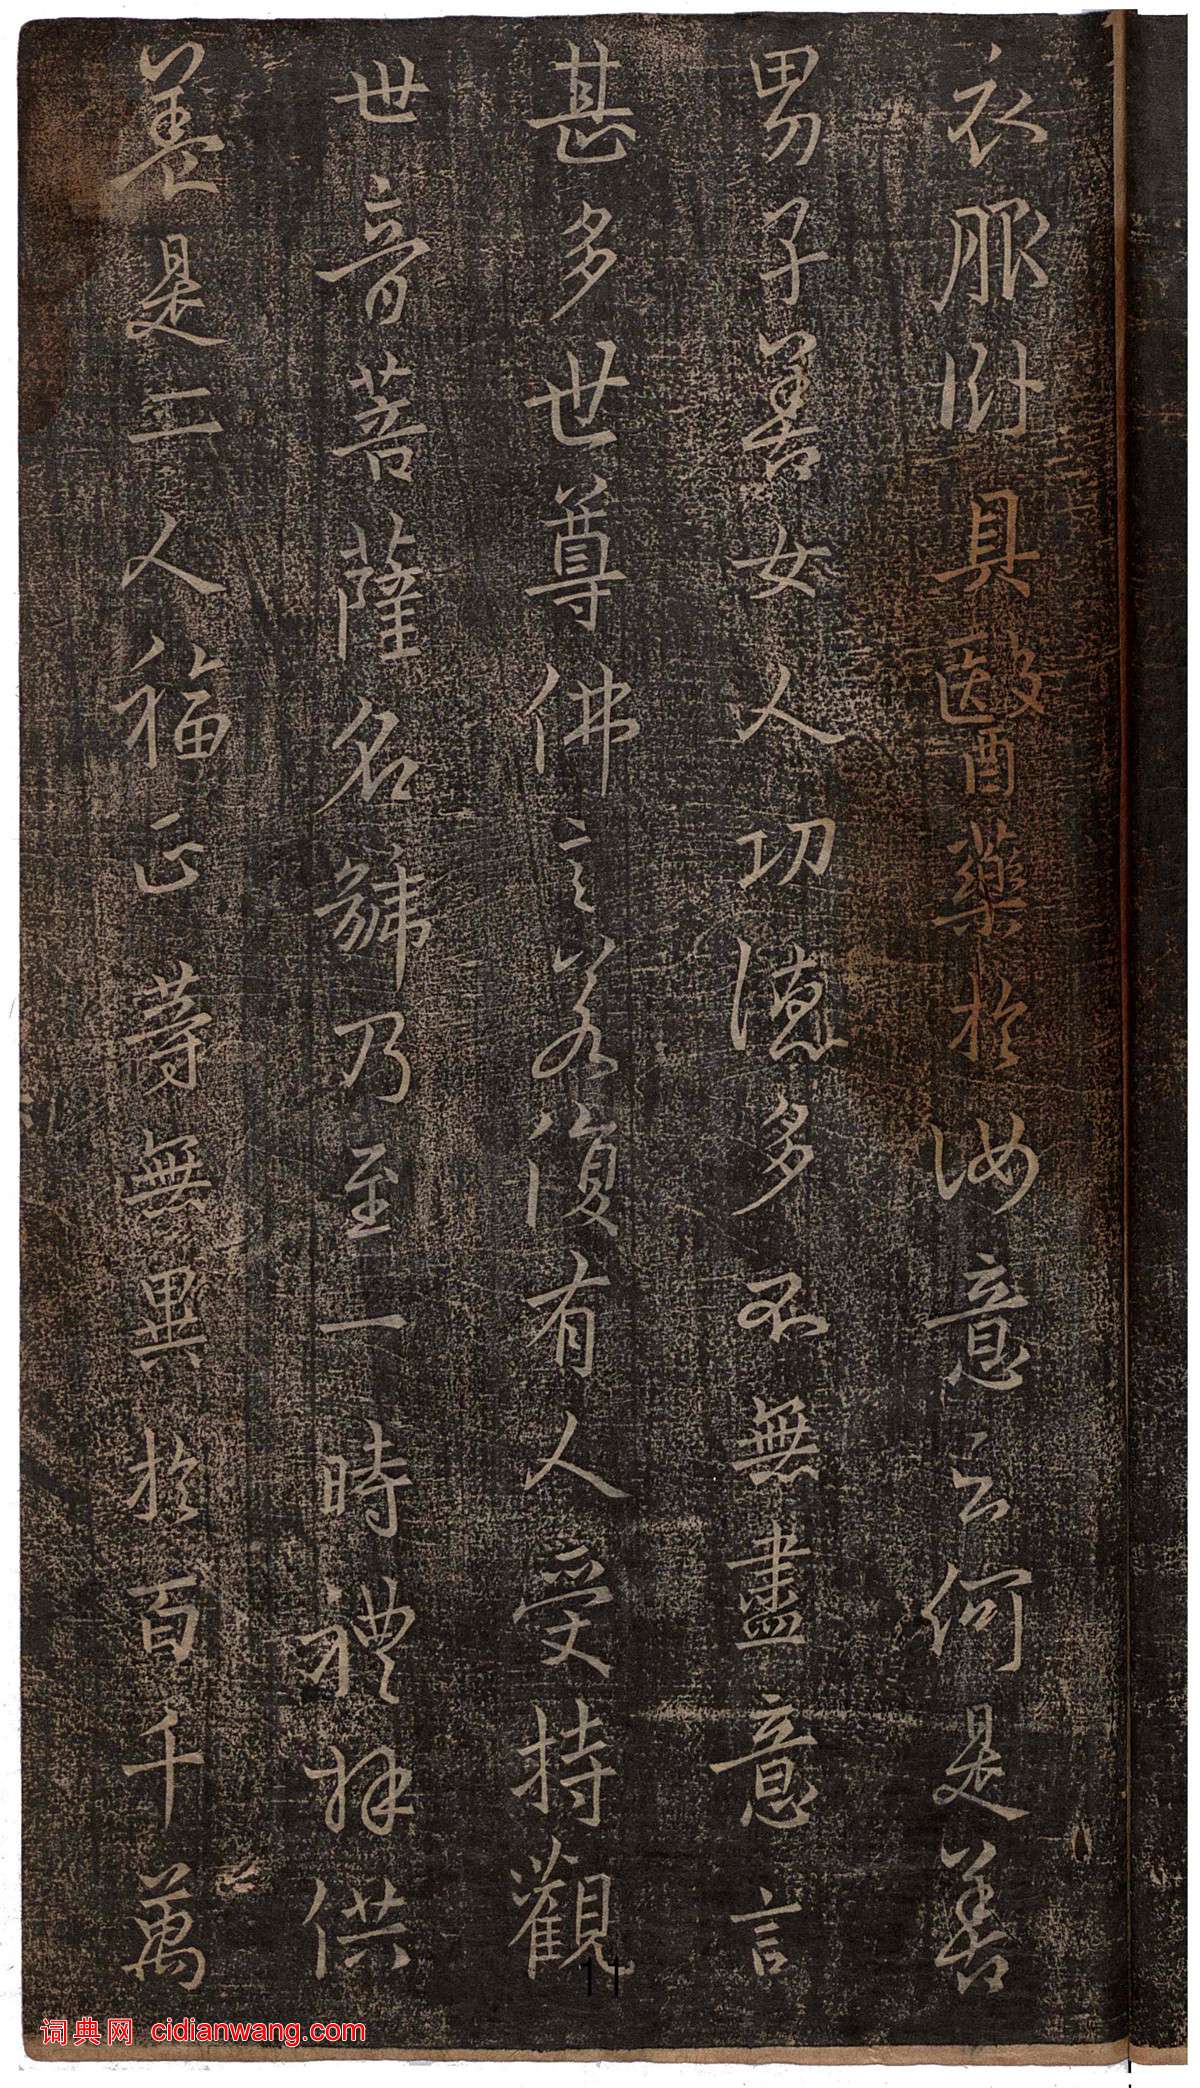 衣服卧具醫藥於汝意云何是善
男子善女人功德多不無盡意言
甚多世尊佛言若復有人受持觀
世音菩薩名號乃至一時禮拜供
養是二人福正等無異於百千萬
11
词典网 cidianwang.com